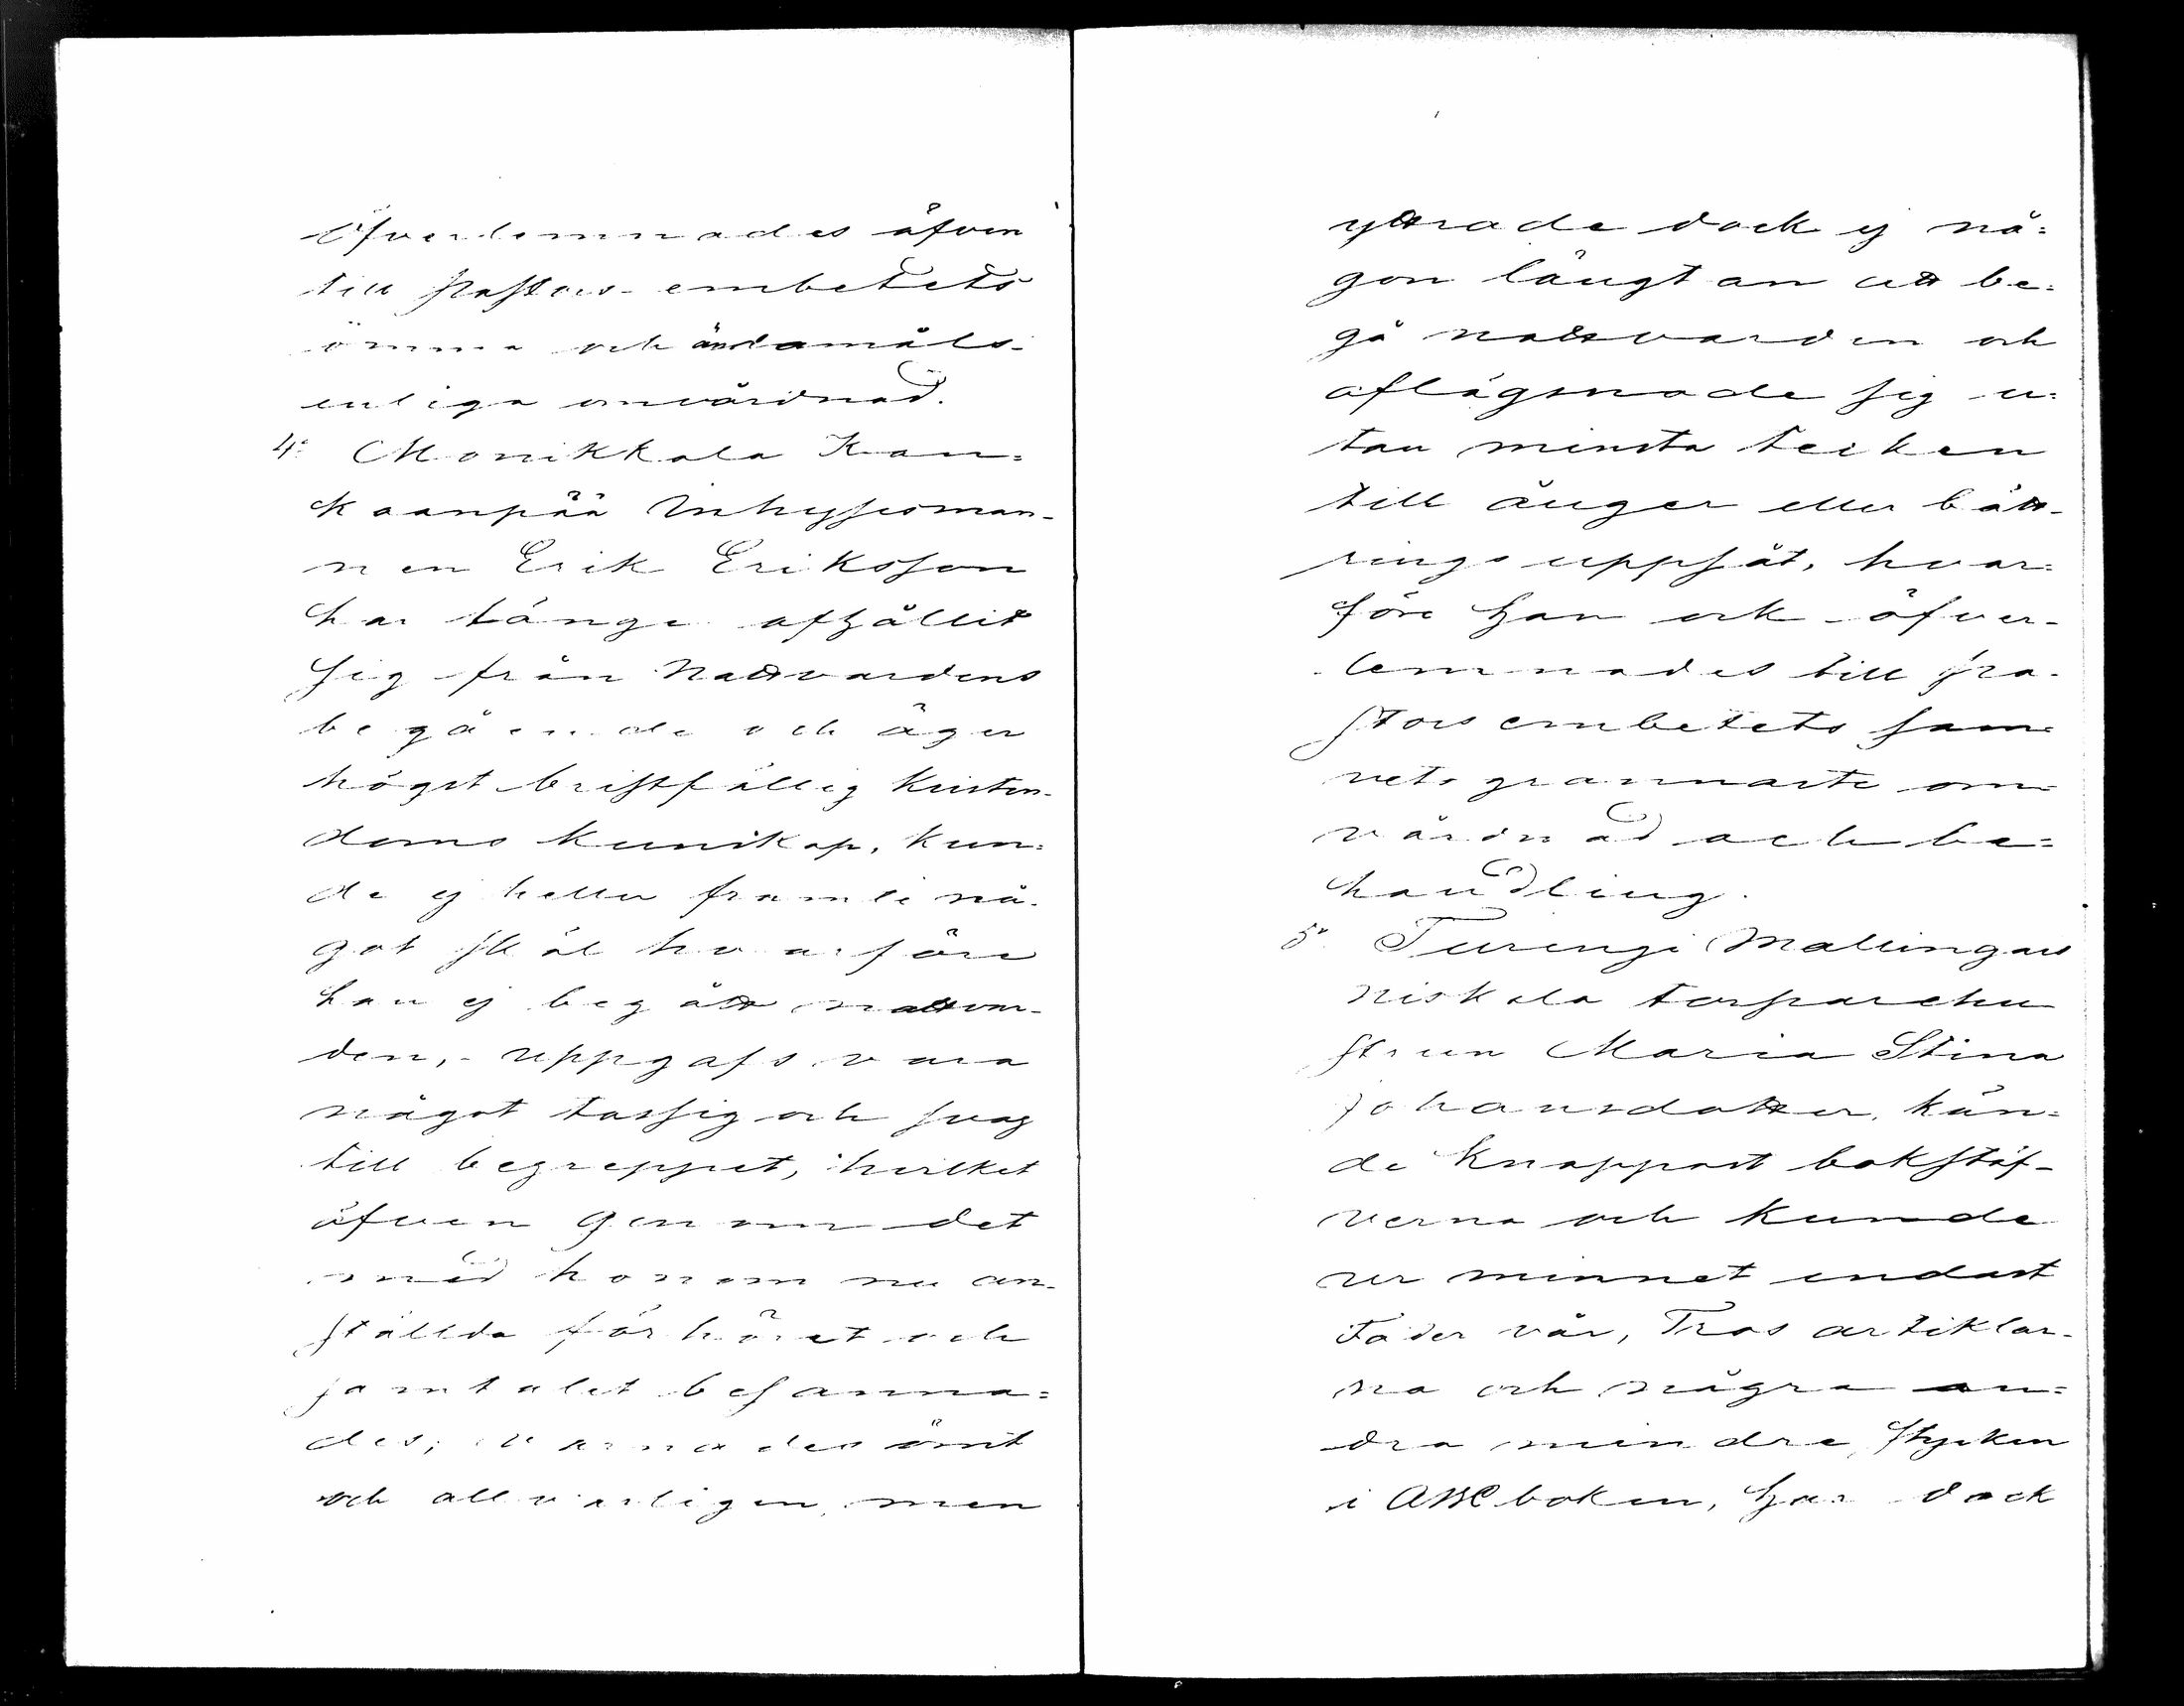 Öfverlemnades äfven
till Pastors-embetets
ömma och ändamåls-
enliga omvårdnad.
4:o Monikkala Kan=
kaanpää Inhysesman-
nen Erik Eriksson
har länge afhållit
sig från Nattvardens
begående och äger
högst bristfällig Kristen-
doms kunskap, kun=
de ej heller framle nå-
got skäl hvarföre
han ej begått nattvar-
den, - uppgafs vara
något tassig och svag
till begreppet, hvilket
äfven genom det
med honom nu an-
ställda förhöret och
samtalet besanna=
des; varnades ömt
och allvarligen, men
yttrade dock ej nå=
gon längtan att be=
gå nattvarden och
aflägsnade sig u=
tan minsta tecken
till ånger eller bätt-
ringsuppsåt, hvar=
före han ock öfver-
lemnades till Pa-
storsembetets sam-
vetsgrannaste om-
vårdnad och be=
handling.
5:o Turengi Mallingais
Niskala torparehu
strun Maria Stina
Johansdotter, kän=
de knappast bokstäf-
verna och kunde
ur minnet endast
Fader vår, Tros artiklar-
na och några an=
dra mindre stycken
i ABC boken, har dock